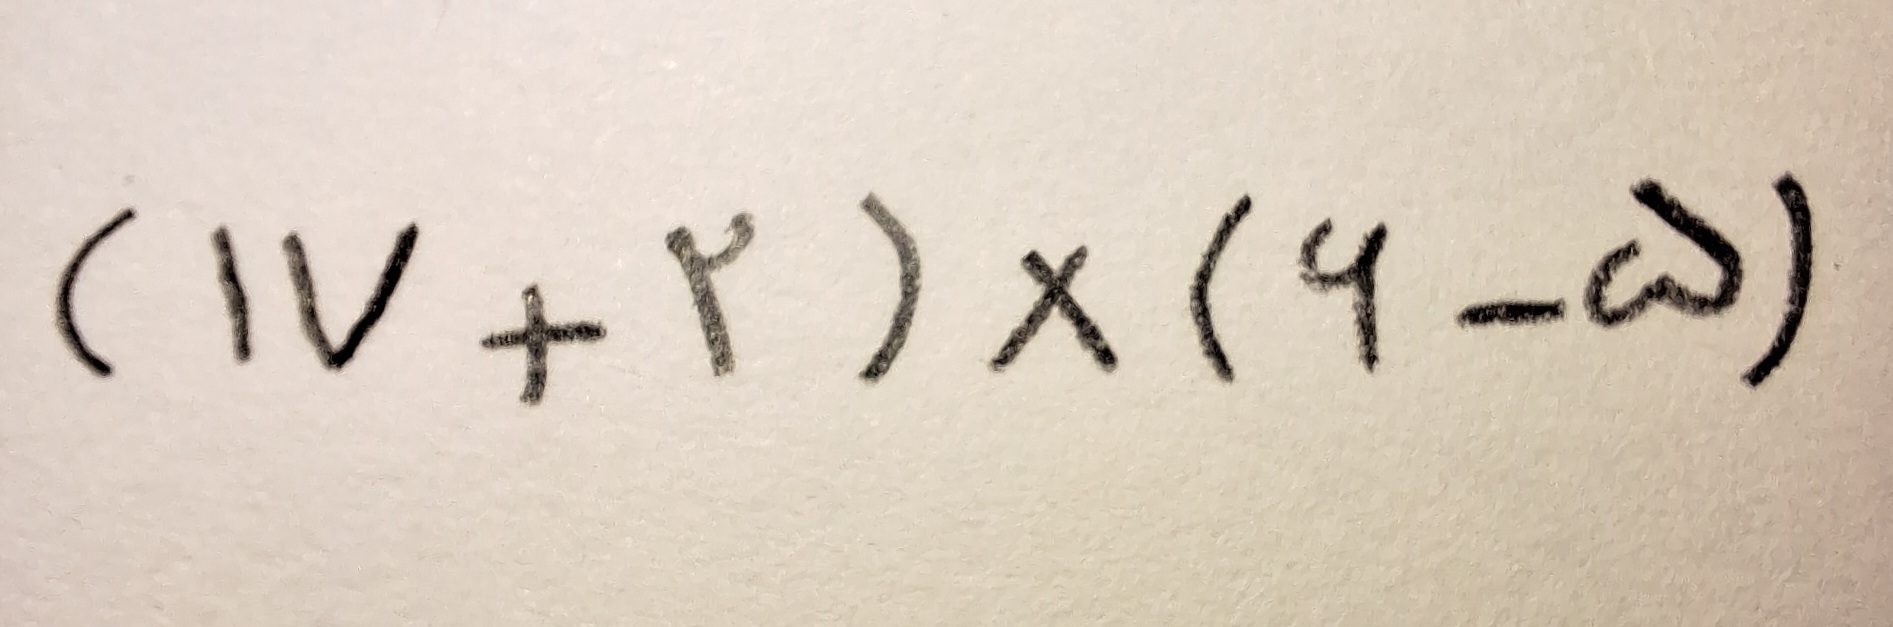 (۱۷ + ۲) × (۶ - ۵)